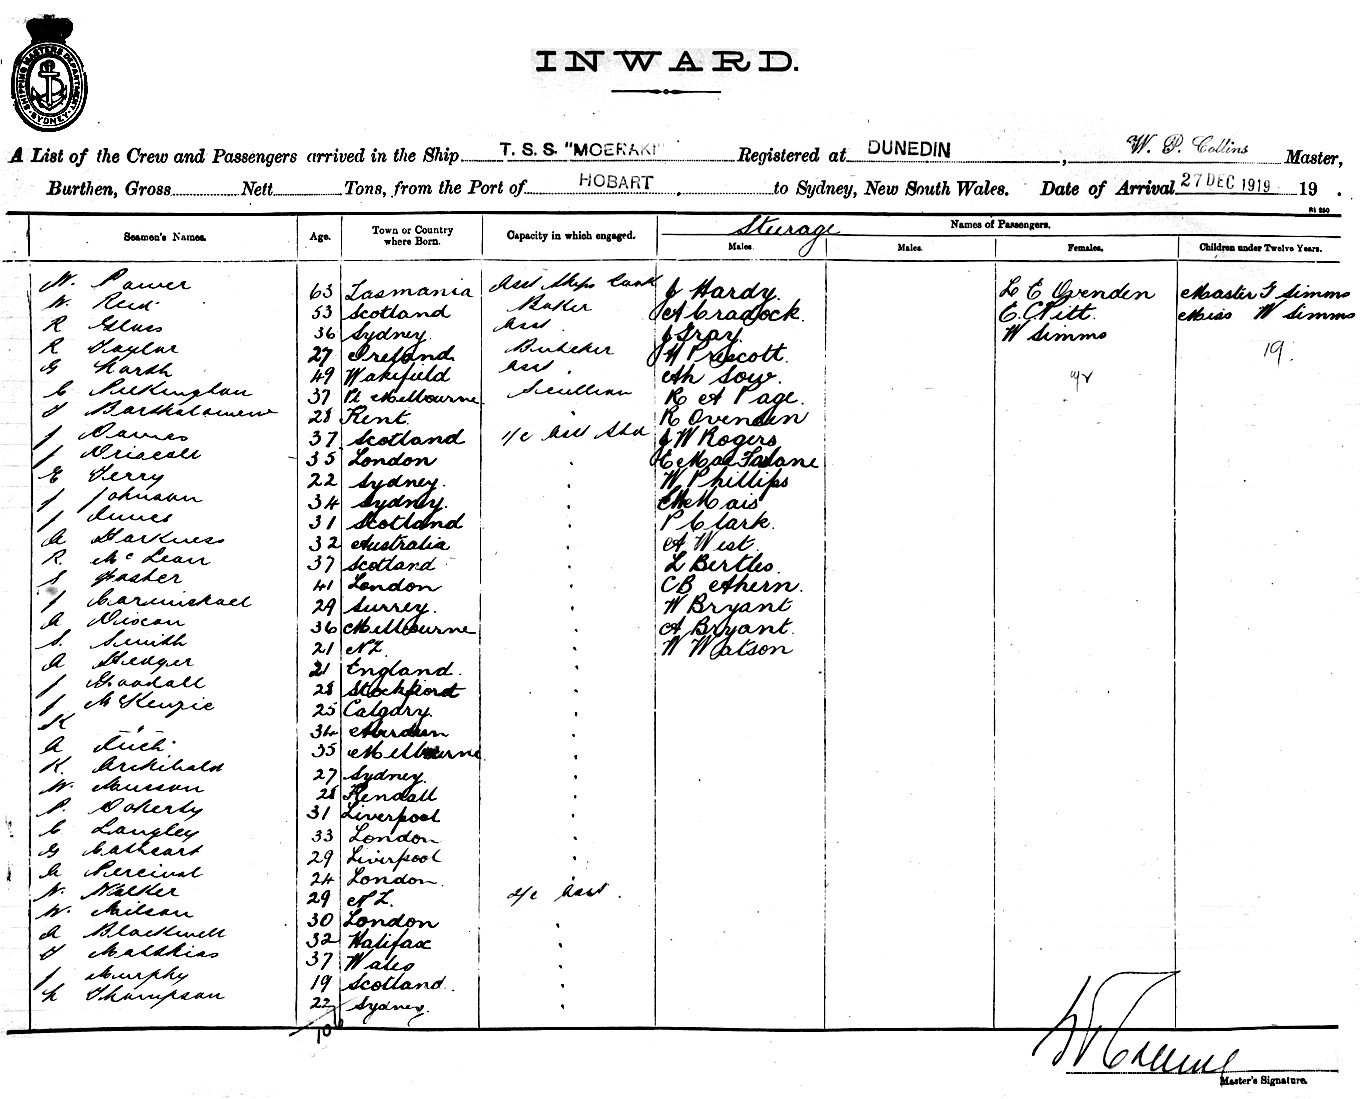 SHIPPING MASTERS DEPARTMENT
SYDNEY
INWARD.
A List of the Crew and Passengers arrived in the Ship T. S. S. "MOERAKI" Registered at DUNEDIN, W. P. Collins Master,
Burthen, Gross Nett Tons, from the Port of HOBART to Sydney, New South Wales. Date of Arrival 27 DEC 1919 19 .
Seamen's Names. Age. Town or Country where Born. Capacity in which engaged. Names of Passengers.
Sturage
Males. Males. Females. Children under Twelve Years.
W. Power 63 Tasmania Asst Ships Cook J Hardy. L E Ovenden Master T Simms
W. Reid 53 Scotland Baker A Cradock. E. C Pitt. Miss W Simms
R 36 Sydney Asst J Gray. W Simms
R Taylor 27 Ireland Butcher W Prescott. 19.
G Marsh 49 Wakefield Asst Ah Sow.
C Pilkington 37 Pt Melbourne. Scullion R A Page.
T Bartholomew 28 Kent. " R Ovenden
J Davies 37 Scotland 1/c Asst Std J W Rogers
J Driscoll 35 London " E MacFarlane
E Terry 22 Sydney. " W Phillips
J Johnson 34 Sydney. " Mais
J Innes 31 Scotland " P Clark.
A Harkness 32 Australia " A West.
R. McLean 37 Scotland " L Bertles.
S 41 London " CB Ahern.
J Carmichael 29 Surrey. " W Bryant
A 36 Melbourne " A Bryant.
S. Smith 21 N.Z. " W Watson
A Hedger 21 England. "
J Goodall 28 Stockport "
J McKenzie 25 Calgary. "
K " 34 Aberdeen "
A 35 Melbourne "
K. Archibald 27 Sydney. "
W. Musson 28 Kendall "
P. Doherty 31 Liverpool "
C Langley 33 London "
G Cathcart 29 Liverpool "
A Percival 24 London. "
W. Walker 29 N.Z. 2/c Asst.
W. Milson 30 London "
A Blackwell 32 Halifax "
T Matthias 37 Wales "
J Murphy 19 Scotland. "
L Thompson 22 Sydney. "
Master's Signature.